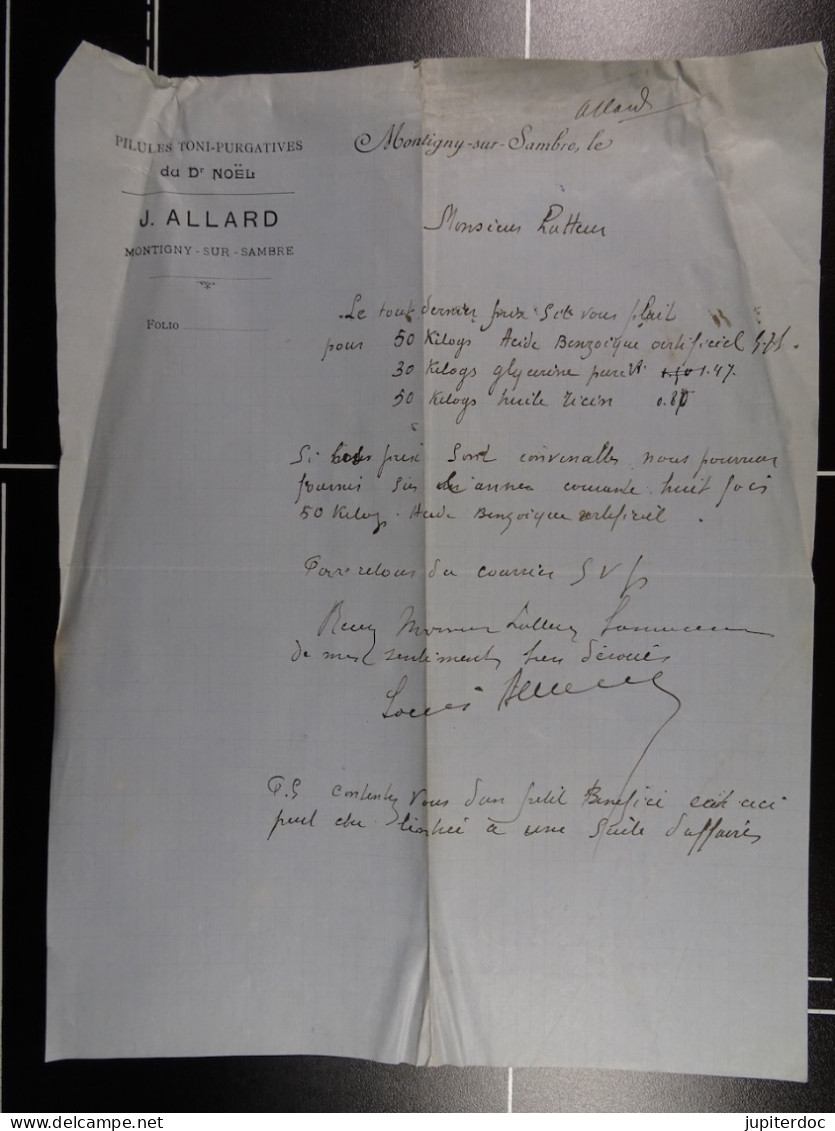 Allard
PILULES TONI-PURGATIVES
du Dr NOËL
J. ALLARD
MONTIGNY-SUR-SAMBRE
FOLIO
Montigny-sur-Sambre, le
Monsieur
Le tout dernier prix S'il vous plait
pour 50 Kilogs Acide Benzoïque artificiel
30 Kilogs glycerine 1.47.
50 Kilogs huile ricin 0.85
Si prix sont convenables nous pourrons
annee courante huit fois
50 Kilogs Acide Benzoïque artificiel.
Par retour du courrier S V p
Monsieur
de mes sentiments bien dévoués
Louis
P.S contentez vous d'un petit Benefice ceci
peut etre à une suite d'affaires
jupiterdoc